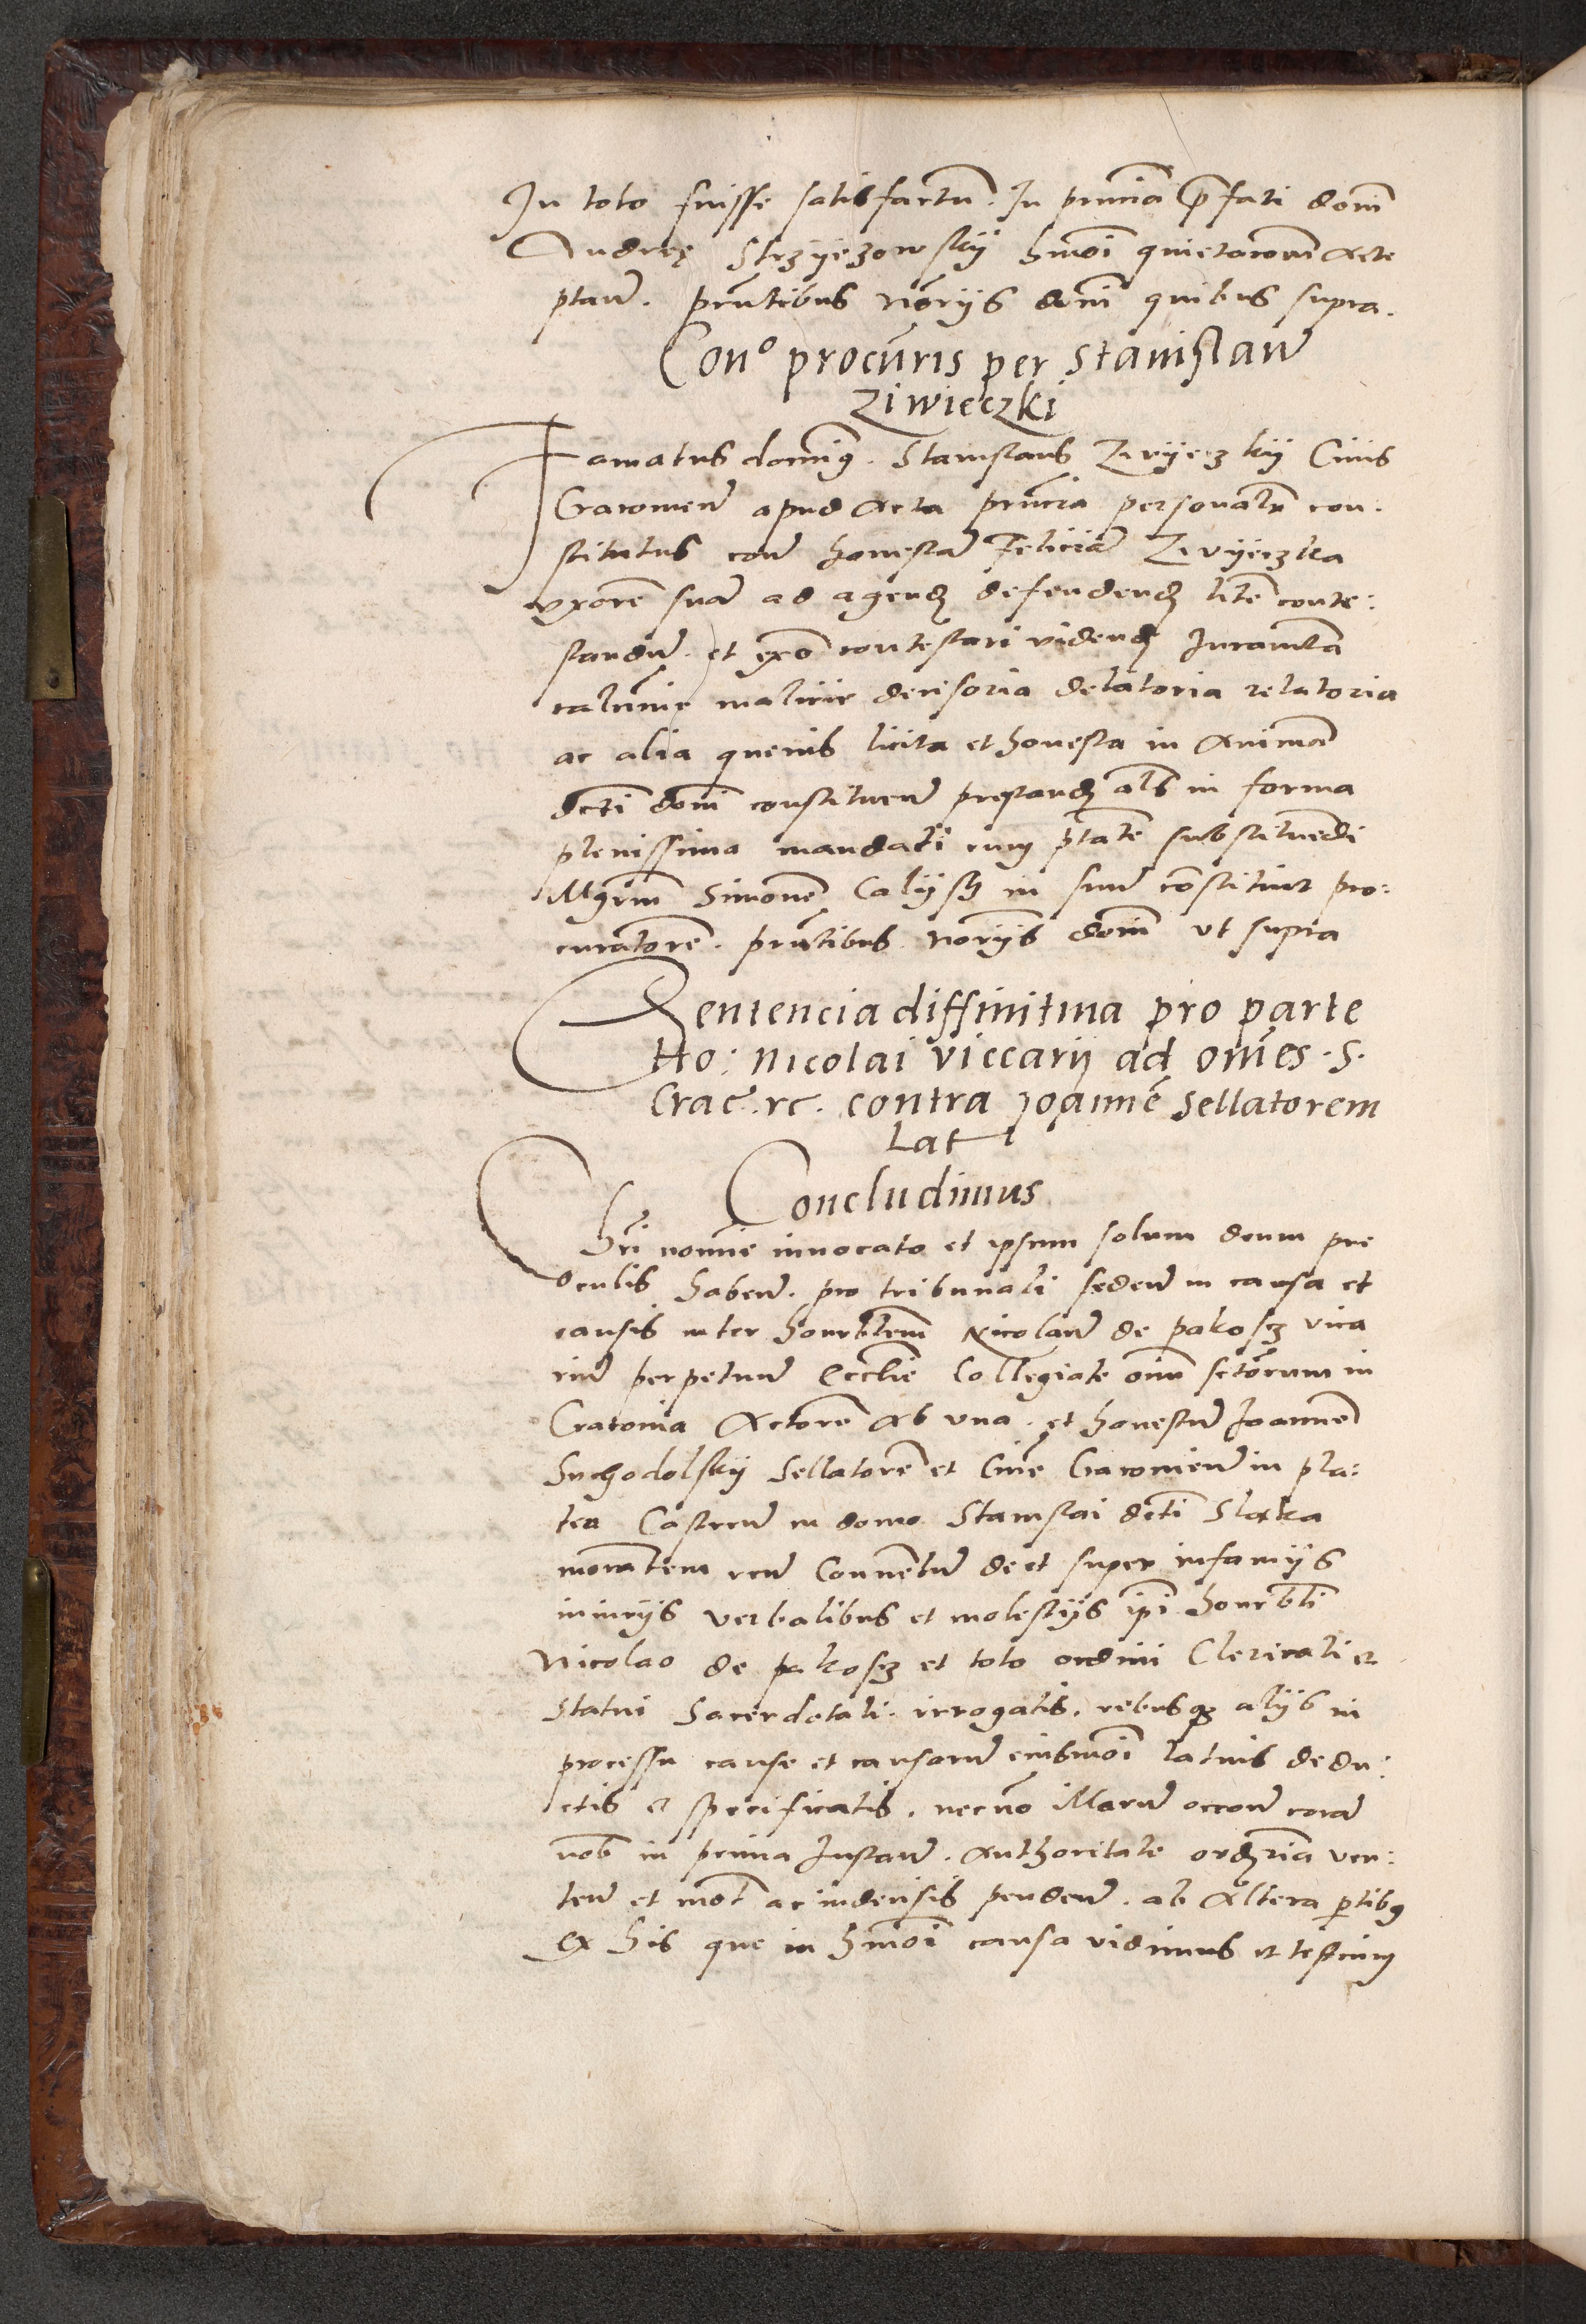 In toto fuisse satisfactu. In prncia pfati domi
Andreę Strzÿezowskÿ hmoi quietacoem Acce
ptan. prntibus noriis domi quibus supra.
Con° procuris per Stanislau
Ziwieczki
Famatus dominus. Stanislaus Zÿvÿeczkÿ Ciuis
Cracouien apud Acta prncia personalr con:
stitutus coram honestam Felicia Zÿvÿeczka
vxore sua ad agend defendend lite conte:
standu. et exo contestari vidend Iuramta
calumnie malicie decisoria delatoria relatoria
ac alia queuis licita et honesta in Anima
dcti domi constituen prestand als in forma
plenissima mandati cum ptate substituedi
Mgrum Simone Calÿsz in suu constituit pro:
curatore. prntibus noriis domi vt supra
Sentencia diffinitiua pro parte
Ho: Nicolai viccarij ad omes. S.
Crac. rc. contra Joanne Sellatorem
Lat
Concludimus
Chri nomie inuocato et ipsum solum deum pre
oculis haben. pro tribunali seden in causa et
causis inter honorblem Nicolau de pakosz vica
riu perpetuu Ecclie Collegiate oim sctorum in
Cracouia Actore Ab vna. et honestu Joanne
Suchodolskÿ Sellatore et Ciue Cracouien in pla:
tea Castren in domo Stanislai dcti Slatka
morantem reu Conuentu de et super infamijs
iniurijs verbalibus et molestijs ipi honorbli
Nicolao de pakosz et toto ordini Clericali et
Statui Sacerdotali. irrogatis. rebusq alijs in
processu cause et causaru eiusmoi latius dedu:
ctis et specificatis. necno illaru occone cora
nob in prima Instan. Authoritate ordria ver:
ten et mot ac indecisis penden. ab Altera ptibus
Ex his que in hmoi causa vidimus et